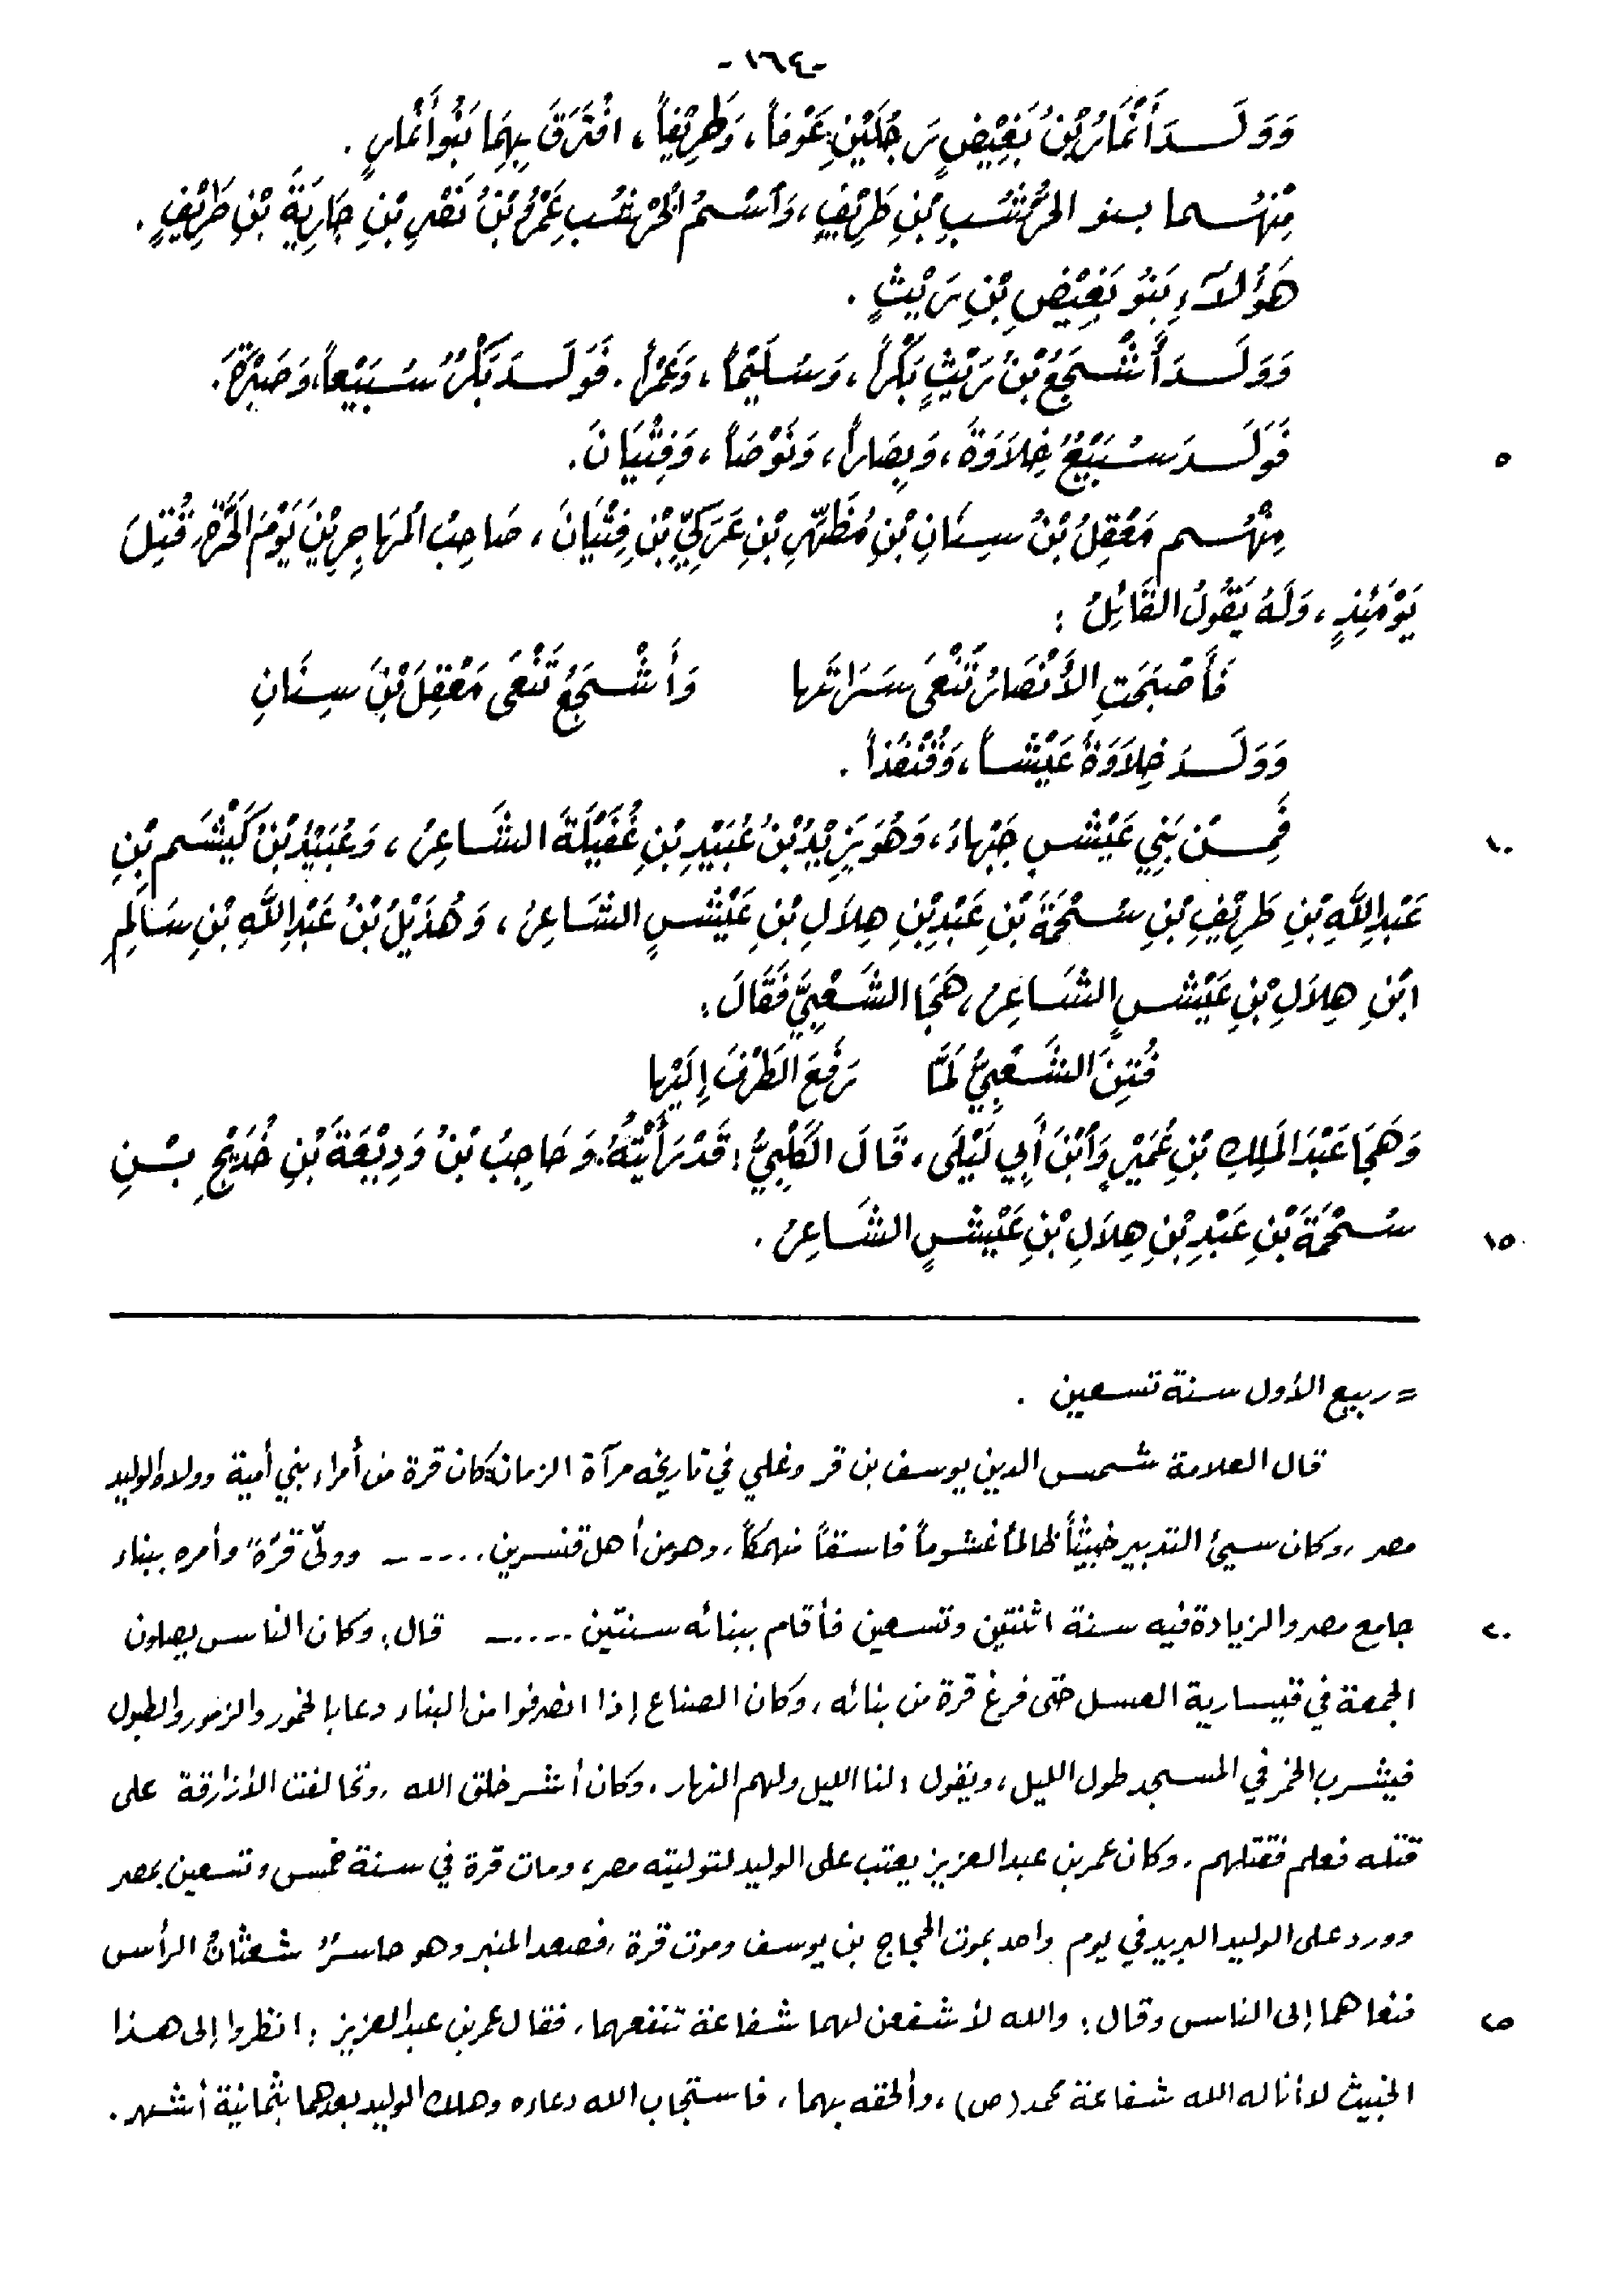 -١٦٤-
وَوَلَدَ أَنْمَارُ بْنُ بَغِيْضٍ رَجُلَيْنِ: عَوْفاً، وَطَرِيْفاً، افْتَرَقَ بِهِمَا بَنُو أَنْمَارٍ.
مِنْهُما بنو الخُرْشُبِ بْنِ طَرِيْفٍ، وَاسْمُ الخُرْشُبِ عَمْرُو بْنُ نَصْرِ بْنِ جَارِيَةَ بْنِ طَرِيْفٍ.
هَؤُلاَءِ بَنُو بَغِيْضِ بْنِ رَيْثٍ.
وَوَلَدَ أَشْجَعُ بْنُ رَيْثٍ بَكْراً، وَسُلَيْماً، وَعَمْراً. فَوَلَدَ بَكْرٌ سُبَيْعاً، وَصَبْرَةَ.
فَوَلَدَ سُبَيْعٌ خِلاَوَةَ، وَبِصَاراً، وَنَوْصاً، وَفِتْيَانَ. ٥
مِنْهُم مَعْقِلُ بْنُ سِنَانِ بْنِ مُظَهِّرِ بْنِ عَرَكِيِّ بْنِ فِتْيَانَ، صَاحِبُ المُهَاجِرِيْنَ يَوْمَ الحَرَّةِ قُتِلَ
يَوْمَئِذٍ، وَلَهُ يَقُولُ القَائِلُ:
فَأَصْبَحَتِ الأَنْصَارُ تَنْعَى سَرَاتَها وَأَشْجَعُ تَنْعَى مَعْقِلَ بْنَ سِنَانِ
وَوَلَدَ خِلاَوَةُ عَيْشاً، وَقُنْفُذاً.
فَمِنْ بَنِي عَيْشٍ جَبْهَاءُ، وَهُوَ يَزِيْدُ بْنُ عُبَيْدِ بْنِ عُقَيْلَةَ الشَّاعِرُ، وَعُبَيْدُ بْنُ كَيْشَمِ بْنِ ١٠
عَبْدِ اللَّهِ بْنِ طَرِيْفِ بْنِ سُحْمَةَ بْنِ عَبْدِ بْنِ هِلاَلِ بْنِ عَيْشٍ الشَّاعِرُ، وَهُذَيْلُ بْنُ عَبْدِ اللَّهِ بْنِ سَالِمِ
ابْنِ هِلاَلِ بْنِ عَيْشٍ الشَّاعِرُ، هَجَا الشَّعْبِيَّ فَقَالَ:
فُتِنَ الشَّعْبِيُّ لَمَّا رَفَعَ الطَّرْفَ إِلَيْها
وَهَجَا عَبْدَ المَلِكِ بْنِ عُمَيْرٍ وَابْنَ أَبِي لَيْلَى، قَالَ الكَلْبِيُّ: قَدْ رَأَيْتُهُ. وَحَاجِبُ بْنُ وَدِيْعَةَ بْنِ خُدَيْجِ بْنِ
سُحْمَةَ بْنِ عَبْدِ بْنِ هِلاَلِ بْنِ عَيْشٍ الشَّاعِرُ. ١٥
= ربيع الأول سنة تسعين .
قال العلامة شمس الدين يوسف بن قزوغلي في تاريخه مرآة الزمان: كان قرة من أمراء بني أمية وولاه الوليد
مصر، وكان سيئ التدبير خبيثاً ظالماً غشوماً فاسقاً منهمكاً، وهو من أهل قنسرين ...... وولّى قرّة وأمره ببناء
جامع مصر والزيادة فيه سنة اثنتين وتسعين فأقام ببنائه سنتين ...... قال: وكان الناس يصلون ٢٠
الجمعة في قيسارية العسل حتى فرغ قرة من بنائه، وكان الصناع إذا انصرفوا من البناء دعا بالخمور والزمور والطبول
فيشرب الخمر في المسجد طول الليل، ويقول: لنا الليل ولهم النهار، وكان أشر خلق الله، وتحالفت الأزارقة على
قتله فعلم فقتلهم. وكان عمر بن عبد العزيز يعتب على الوليد لتوليته مصر، ومات قرة في سنة خمس وتسعين بمصر
وورد على الوليد البريد في يوم واحد بموت الحجاج بن يوسف وموت قرة، فصعد المنبر وهو حاسرٌ شعثانُ الرأس
فنعاهما إلى الناس وقال: والله لأشفعن لهما شفاعة تنفعهما، فقال عمر بن عبد العزيز: انظروا إلى هذا ٢٥
الخبيث لا أناله الله شفاعة محمد (ص)، وألحقه بهما، فاستجاب الله دعاءه وهلك الوليد بعدهما بثمانية أشهر.